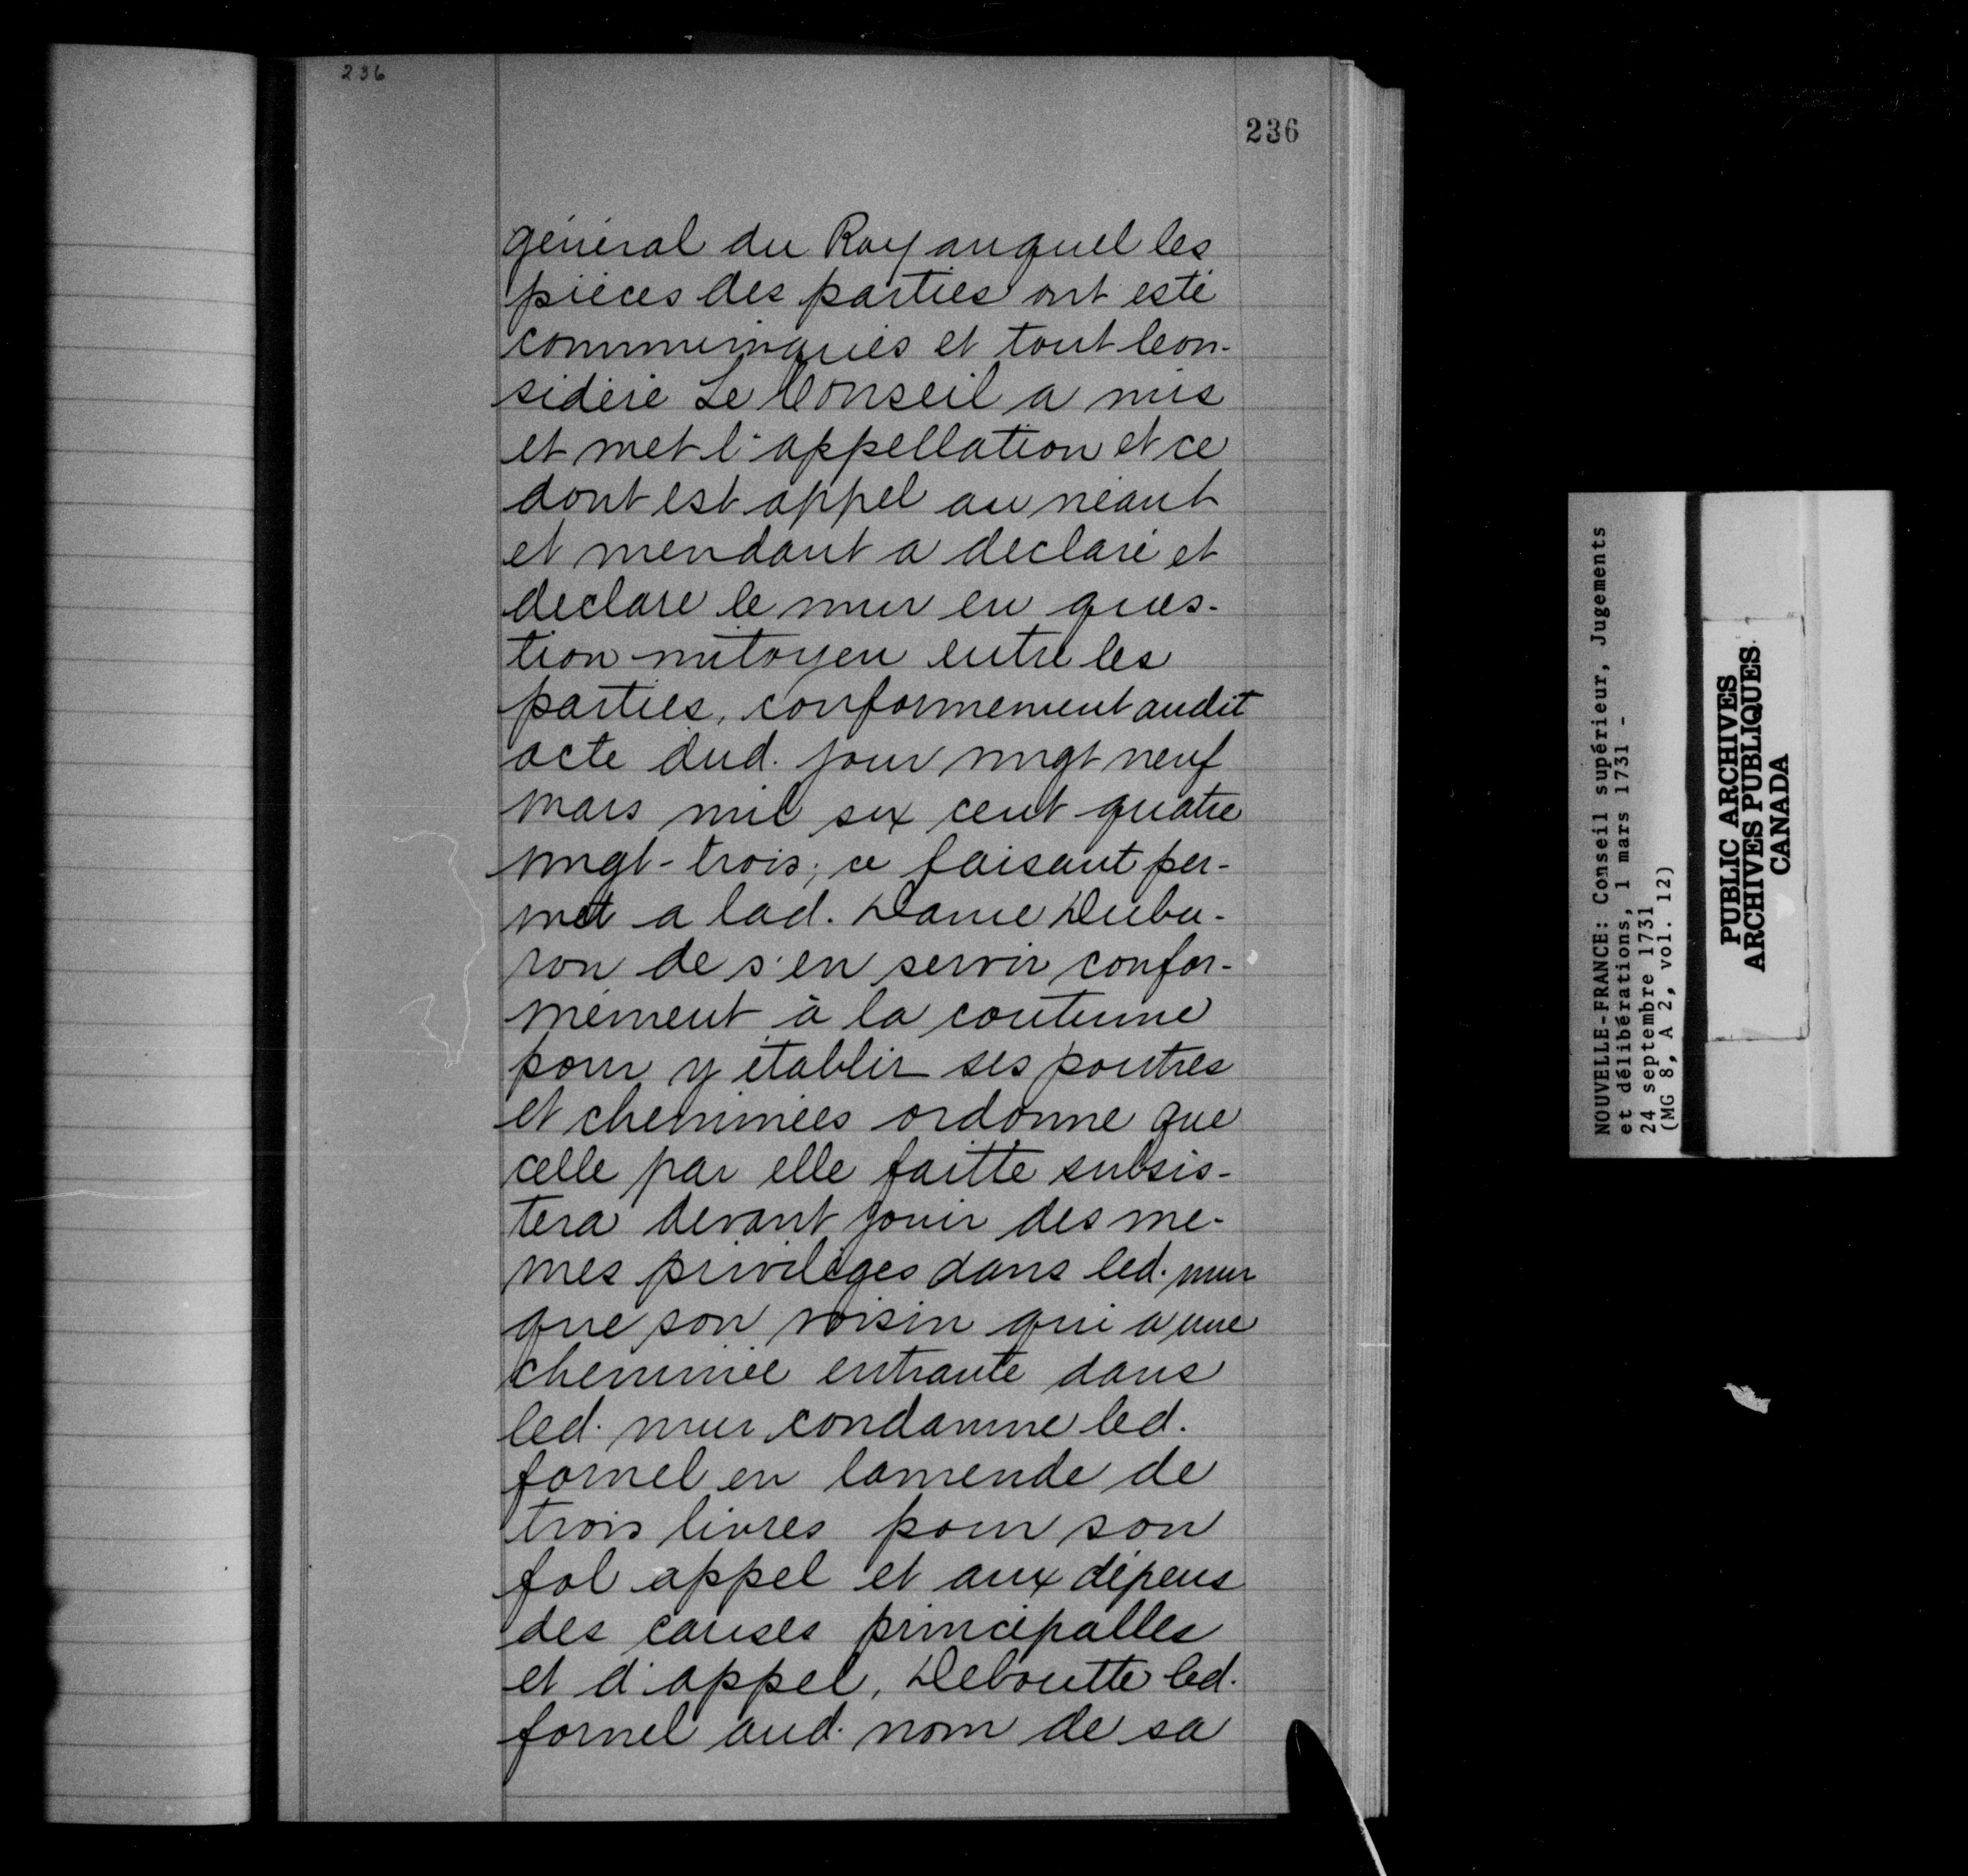 236
236
général du Roy auquel les
pièces des parties ont esté
communiqués et tout con-
sidéré Le Conseil a mis
et met l'appellation et ce
dont est appel au néant
et mendant a declaré et
declare le mur en ques-
tion mitoyen entre les
parties, conformement audit
acte dud. jour vingt neuf
mars mil six cent quatre
vingt-trois; ce faisant per-
met a lad. Dame Dubu-
ron de s'en servir confor-
mément à la coutume
pour y établir ses poutres
et cheminées ordonne que
celle par elle faitte subsis-
tera devant jouir des me-
mes privilèges dans led. mur
que son voisin qui a une
cheminée entrante dans
led. mur condamne led.
fornel en lamende de
trois livres pour son
fol appel et aux dépens
des causes principalles
et d'appel, Deboutte led.
fornel aud. nom de sa
NOUVELLE-FRANCE: Conseil supérieur, Jugements
et délibérations, 1 mars 1731 -
24 septembre 1731
(MG 8, A 2, vol. 12)
PUBLIC ARCHIVES
ARCHIVES PUBLIQUES
CANADA